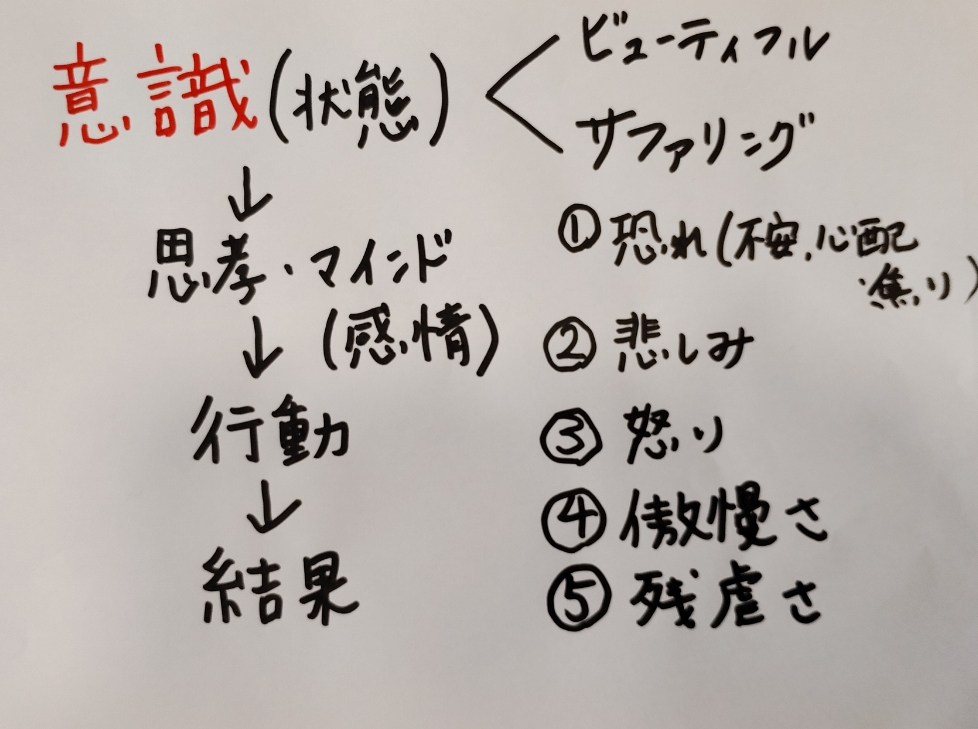 意識(状態)
ビューティフル
サファリング
↓
思考・マインド
↓ (感情)
行動
↓
結果
① 恐れ(不安、心配
焦り)
② 悲しみ
③ 怒り
④ 傲慢さ
⑤ 残虐さ